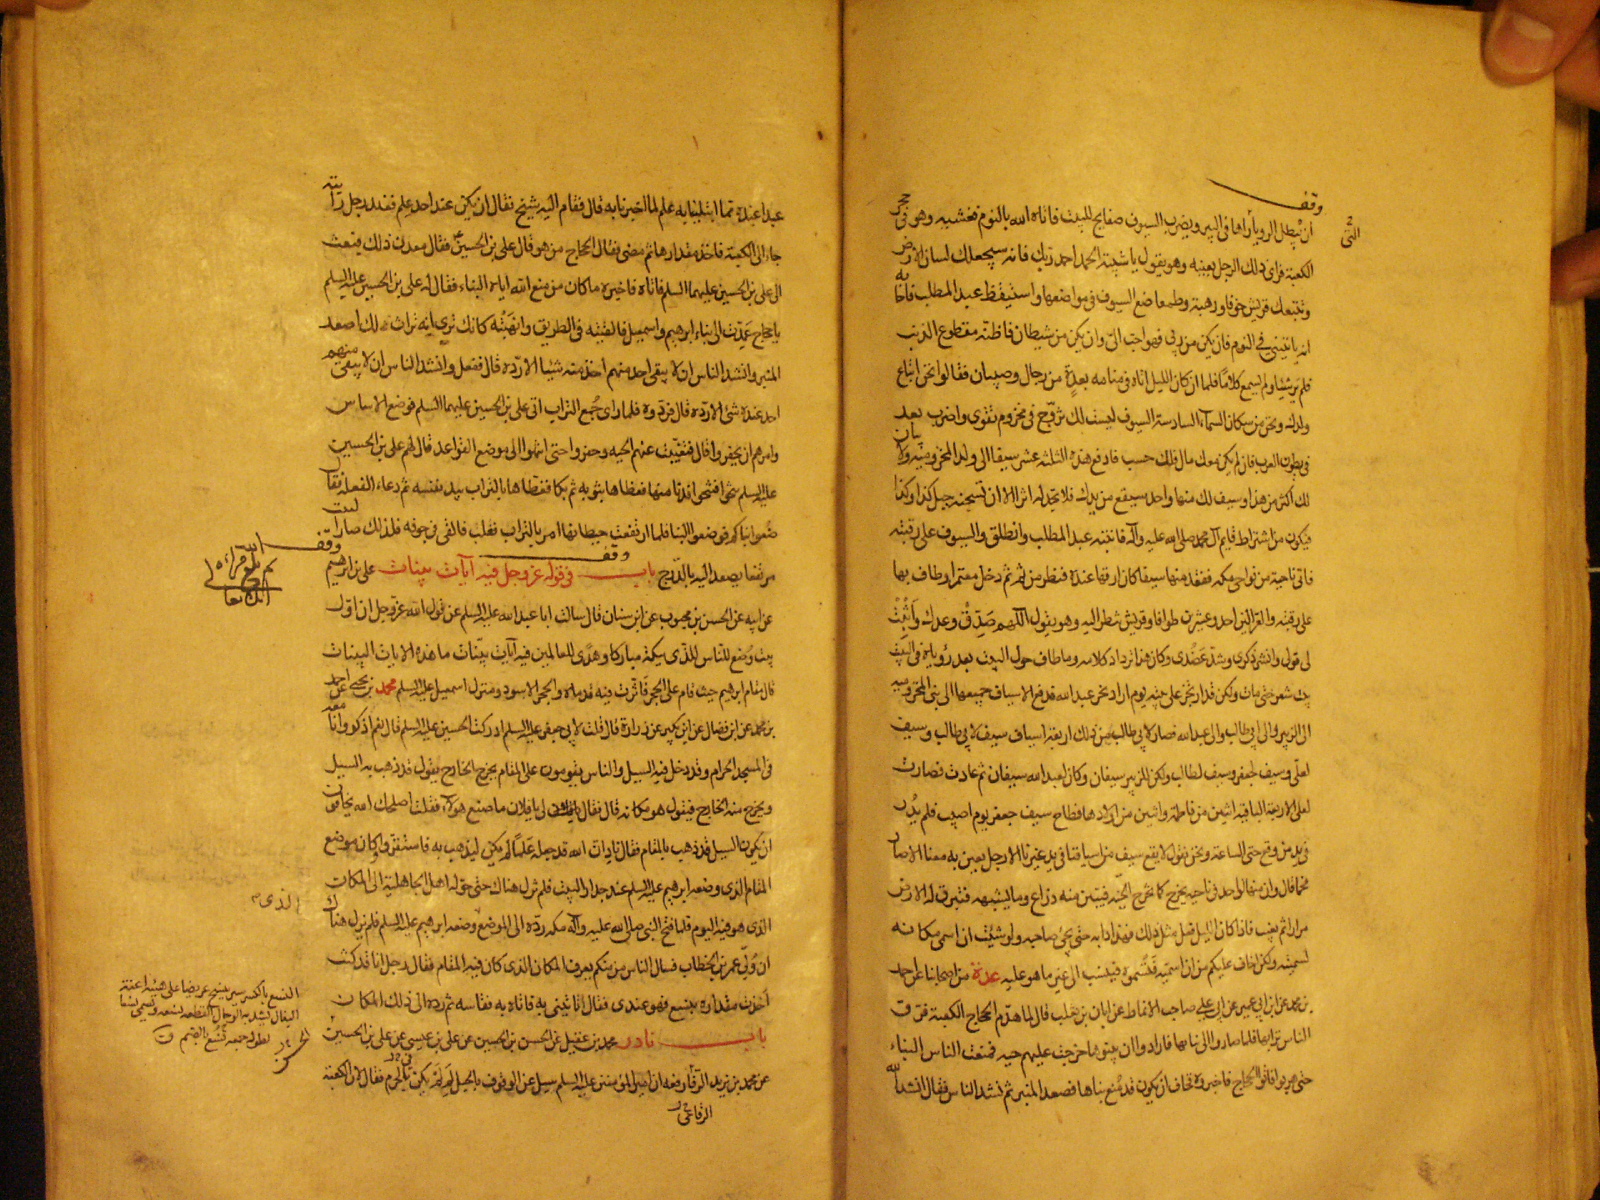 وقف
أن يبطل الرؤيا رآها في البير ويضرب السيوف صفايح للبيت فاتاه الله بالنوم فغشيه وهو في حجر
الكعبة فراى ذلك الرجل بعينه وهو يقول يا شيبة الحمد احمد ربك فانه سيجعلك لسان الارض
ويتبعك قريش خوفا ورهبة وطمعا ضع السيوف في مواضعها واستيقظ عبد المطلب فاجابه
انه ياتيني في النوم فان يكن من ربي فهو احب الى وان يكن من شيطان فاظنه مقطوع الذنب
فلم ير شيئا ولم يسمع كلاما فلما ان كان الليل اتاه في منامه بعدة من رجال وصبيان فقالوا نحن اتباع
ولدك ونحن من سكان السماء السادسة السيوف ليست لك تزوج في مخزوم تقوى واضرب بعد
في بطون العرب فان لم يكن معك مال فلك حسب فادفع هذه الثلثة عشر سيفا الى ولد المخزومية ولا يبان
لك اكثر من هذا وسيف لك منها واحد سيقع من يدك فلا تجد له اثرا الا ان تسجنه جبل كذا وكذا
فيكون من اشتراط قايم آل محمد صلى الله عليه وآله فانتبه عبد المطلب وانطلق والسيوف على رقبته
فاتى ناحية من نواحي مكه ففقد منها سيفا كان ارقها عنده فيظهر من ثم ثم دخل معتمرا وطاف بها
على رقبته والغزالين احد وعشرين طوافا وقريش تنظر اليه وهو يقول اللهم صدق وعدك واثبت
لي قولي وانشر ذكري وشد عضدي وكان هذا ترداد كلامه وما طاف حول البيت بعد رؤياه في البير
ببيت شعر حتى مات ولكن قد ارتجز على بنيه يوم اراد نحر عبد الله فدفع الاسياف جميعها الى بني المخزومية
الى الزبير والى ابي طالب والى عبد الله فصار لابي طالب من ذلك اربعة اسياف سيف لابي طالب وسيف
لعلي وسيف لجعفر وسيف لطالب وكان للزبير سيفان وكان لعبد الله سيفان ثم عادت فصارت
لعلى الاربعة الباقية اثنين من فاطمة واثنين من اولادها فطاح سيف جعفر يوم اصيب فلم يدر
في يد من وقع حتى الساعة ونحن نقول لا يقع سيف من اسيافنا في يد غيرنا الا رجل يعين به معنا الا صار
فحما قال وان منها لواحد في ناحية يخرج كما تخرج الحية فيبين منه ذراع وما يشبهه فتبرق له الارض
مرارا ثم يغيب فاذا كان الليل فعل مثل ذلك فهذا دابه حتى يجئ صاحبه ولو شئت ان اسمي مكانه
لسميته ولكن اخاف عليكم من ان اسميه فتسموه فينسب الى غير ما هو عليه عدة من اصحابنا عن احمد
بن محمد عن ابن ابي عمير عن ابي علي صاحب الانماط عن ابان بن تغلب قال لما هدم الحجاج الكعبة فرق
الناس ترابها فلما صاروا الى بنائها فارادوا ان يبنوها خرجت عليهم حية فمنعت الناس البناء
حتى هربوا فاتوا الحجاج فاخبروه فخاف ان يكون قد منع بناءها فصعد المنبر ثم نشد الناس فقال انشد الله
عبدا عنده مما ابتلينا به علم لما اخبرنا به قال فقام اليه شيخ فقال ان يكن عند احد علم فعند رجل رايته
جاء الى الكعبة فاخذ مقدارها ثم مضى فقال الحجاج من هو قال علي بن الحسين فقال معدن ذلك فبعث
الى علي بن الحسين عليهما السلم فاتاه فاخبره ما كان من منع الله اياه البناء فقال له علي بن الحسين عليه السلم
يا حجاج عمدت الى بناء ابرهيم واسمعيل فالقيته في الطريق وانتهبته كانك ترى انه تراث لك اصعد
المنبر وانشد الناس ان لا يبقى احد منهم اخذ منه شيئا الا رده قال ففعل وانشد الناس ان لا يبقى منهم
احد عنده شئ الا رده قال فردوه فلما راى جمع التراب اتى علي بن الحسين عليهما السلم فوضع الاساس
وامرهم ان يحفروا قال فتغيبت عنهم الحية وحفروا حتى انتهوا الى موضع القواعد قال لهم علي بن الحسين
عليه السلم تنحوا فتنحوا فدنا منها فغطاها بثوبه ثم بكا ثم غطاها بالتراب بيد نفسه ثم دعا الفعلة فقال
ضعوا بناكم فوضعوا البنا فلما ارتفعت حيطانها امر بالتراب فقلب فالقى في جوفه فلذلك صار البيت
مرتفعا يصعد اليه بالدرج باب في قوله عز وجل فيه آيات بينات علي بن ابرهيم
وقف
عن ابيه عن الحسن بن محبوب عن ابن سنان قال سالت ابا عبد الله عليه السلم عن قول الله عز وجل ان اول
بيت وضع للناس للذي ببكة مباركا وهدى للعالمين فيه آيات بينات ما هذه الايات البينات
قال مقام ابرهيم حيث قام على الحجر فاثرت فيه قدماه والحجر الاسود ومنزل اسمعيل عليه السلم محمد بن يحيى عن احمد
بن محمد عن ابن فضال عن ابن بكير عن زرارة قال قلت لابي جعفر عليه السلم ادركت الحسين عليه السلم قال نعم اذكر وانا معه
في المسجد الحرام وقد دخل فيه السيل والناس يقومون على المقام يخرج الخارج يقول قد ذهب به السيل
ويخرج منه الخارج فيقول هو مكانه قال فقال لي يا فلان ما صنع هؤلاء فقلت اصلحك الله يخافون
ان يكون السيل قد ذهب بالمقام فقال ناد ان الله قد جعله علما لم يكن ليذهب به فاستقروا وكان موضع
المقام الذي وضعه ابرهيم عليه السلم عند جدار البيت فلم يزل هناك حتى حوله اهل الجاهلية الى المكان
الذي هو فيه اليوم فلما فتح النبي صلى الله عليه وآله مكه رده الى الموضع وضعه ابرهيم عليه السلم فلم يزل هناك
ان ولي عمر بن الخطاب فسال الناس من منكم يعرف المكان الذي كان فيه المقام فقال رجل انا قد كنت
اخذت مقداره بنسع فهو عندي فقال ائتني به فاتاه به فقاسه ثم رده الى ذلك المكان
باب نادر محمد بن عقيل عن الحسن بن الحسين عن علي بن عيسى عن علي بن الحسين
عن محمد بن يزيد الرفاعي رفعه ان امير المؤمنين عليه السلم سئل عن الوقوف بالجبل لم لم يكن في الحرم فقال لان الكعبة
الرفاعي
وقف
الذي
النسع بالكسر سير ينسج عريضا على هيئة اعنة
البغال تشد به الرحال